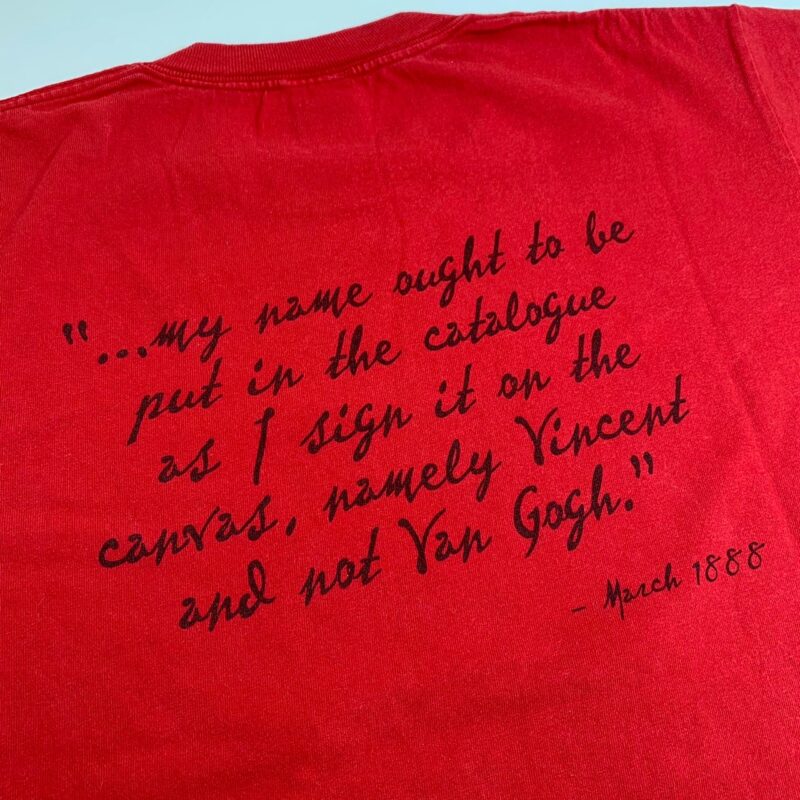 "...my name ought to be
put in the catalogue
as I sign it on the
canvas, namely Vincent
and not Van Gogh."
- March 1888